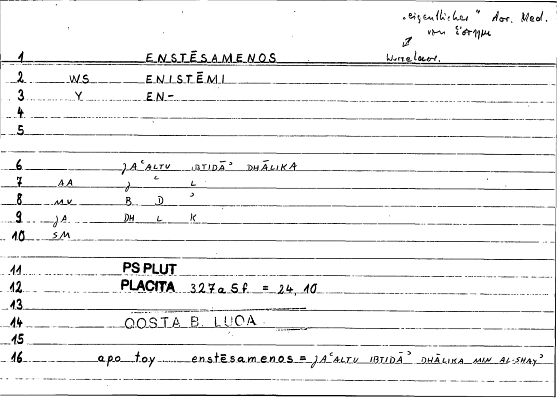 „eigentlicher" Aor. Med.
von ἵστημι
Wurzelaor.
1 ENSTĒSAMENOS
2 WS ENISTĒMI
3 Y EN-
4
5
6 JAʿALTU IBTIDĀʾ DHĀLIKA
7 AA J ʿ L
8 MV B D ʾ
9 JA DH L K
10 SM
11 PS PLUT
12 PLACITA 327a5f. = 24, 10
13
14 QOSTA B. LUQA
15
16 apo toy enstēsamenos = JAʿALTU IBTIDĀʾ DHĀLIKA MIN AL-SHAYʾ